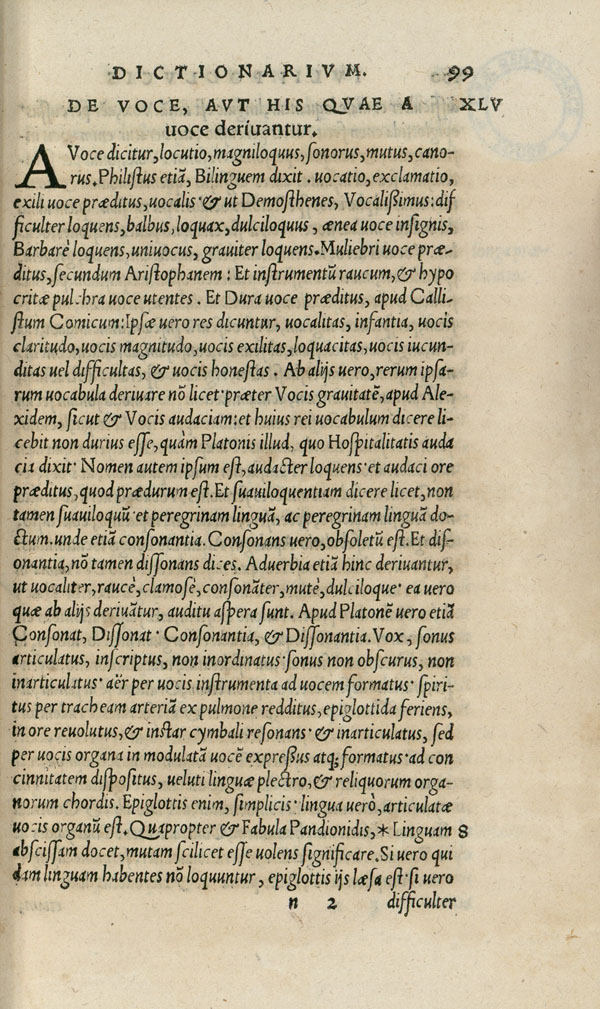 DICTIONARIVM. 99
DE VOCE, AVT HIS QVAE A XLV
uoce deriuantur.
A Voce dicitur, locutio, magniloquus, sonorus, mutus, cano-
rus. Philistus etiã, Bilinguem dixit. uocatio, exclamatio,
exili uoce præditus, uocalis· & ut Demosthenes, Vocalißimus: dif
ficulter loquens, balbus, loquax, dulciloquus, ænea uoce insignis,
Barbarè loquens, uniuocus, grauiter loquens. Muliebri uoce præ-
ditus, secundum Aristophanem: Et instrumentũ raucum, & hypo
critæ pulchra uoce utentes. Et Dura uoce præditus, apud Calli-
stum Comicum: Ipsæ uero res dicuntur, uocalitas, infantia, uocis
claritudo, uocis magnitudo, uocis exilitas, loquacitas, uocis iucun-
ditas uel difficultas, & uocis honestas. Ab alijs uero, rerum ipsa-
rum uocabula deriuare nõ licet· præter Vocis grauitatẽ, apud Ale-
xidem, sicut & Vocis audaciam: et huius rei uocabulum dicere li-
cebit non durius esse, quàm Platonis illud, quo Hospitalitatis auda
cia dixit· Nomen autem ipsum est, audacter loquens· et audaci ore
præditus, quod prædurum est. Et suauiloquentiam dicere licet, non
tamen suauiloquũ· et peregrinam linguã, ac peregrinam linguã do-
ctum. unde etiã consonantia. Consonans uero, obsoletũ est. Et dis-
onantia, nõ tamen dissonans dices. Aduerbia etiã hinc deriuantur,
ut uocaliter, raucè, clamosè, consonãter, mutè, dulciloque· ea uero
quæ ab alijs deriuãtur, auditu aspera sunt. Apud Platonẽ uero etiã
Consonat, Dissonat· Consonantia, & Dissonantia. Vox, sonus
articulatus, inscriptus, non inordinatus· sonus non obscurus, non
inarticulatus· aër per uocis instrumenta ad uocem formatus· spiri-
tus per tracheam arteriã ex pulmone redditus, epiglottida feriens,
in ore reuolutus, & instar cymbali resonans· & inarticulatus, sed
per uocis organa in modulatã uocẽ expressus atq; formatus· ad con
cinnitatem dispositus, ueluti linguæ plectro, & reliquorum orga-
norum chordis. Epiglottis enim, simplicis· lingua uerò, articulatæ
uocis organũ est. Quapropter & Fabula Pandionidis, * Linguam 8
abscissam docet, mutam scilicet esse uolens significare. Si uero qui
dam linguam habentes nõ loquuntur, epiglottis ijs læsa est· si uero
n 2 difficulter